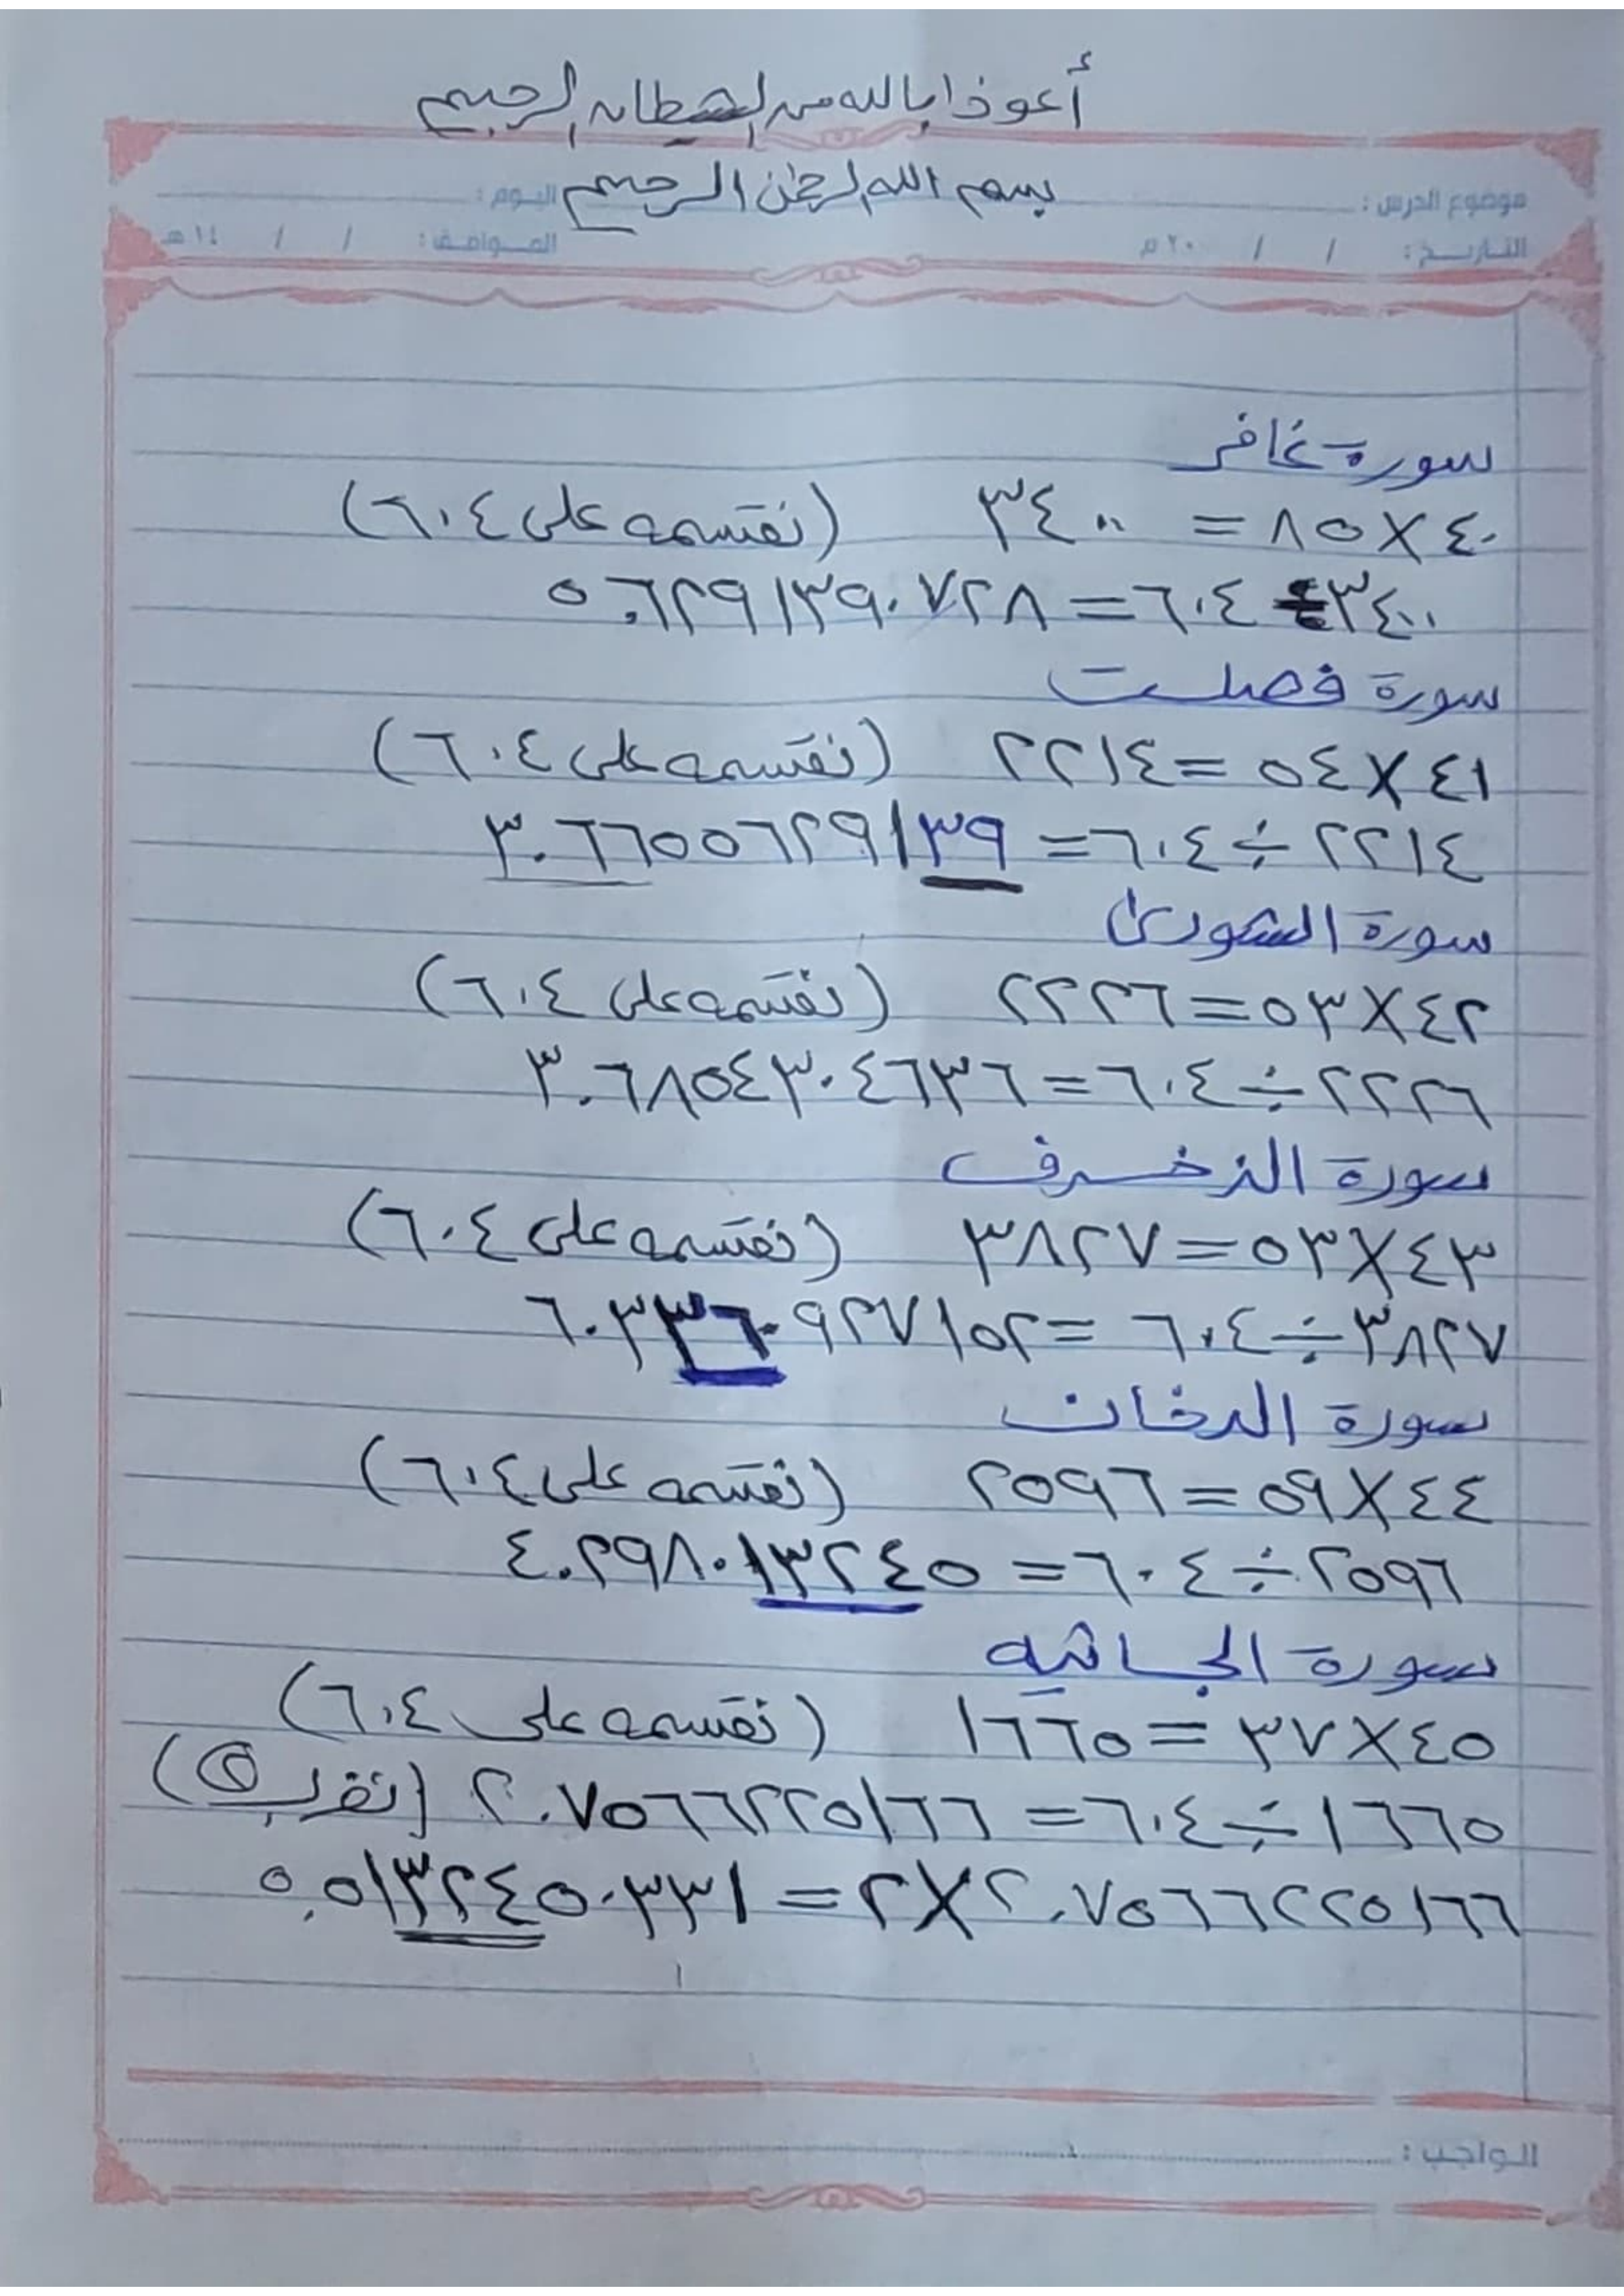 أعوذ بالله من الشيطان الرجيم
بسم الله الرحمن الرحيم
موضوع الدرس : اليوم :
التاريخ : / / ٢٠ م الموافق : / / ١٤ هـ
سورة غافر
٤٠ × ٨٥ = ٣٤٠٠ (نقسمه على ٦٠٤)
٣٤٠٠ ÷ ٦٠٤ = ٥.٦٢٩١٣٩٠٧٢٨
سورة فصلت
٤١ × ٥٤ = ٢٢١٤ (نقسمه على ٦٠٤)
٢٢١٤ ÷ ٦٠٤ = ٣.٦٦٥٥٦٢٩١٣٩
سورة الشورى
٤٢ × ٥٣ = ٢٢٢٦ (نقسمه على ٦٠٤)
٢٢٢٦ ÷ ٦٠٤ = ٣.٦٨٥٤٣٠٤٦٣٦
سورة الزخرف
٤٣ × ٥٣ = ٣٨٢٧ (نقسمه على ٦٠٤)
٣٨٢٧ ÷ ٦٠٤ = ٦.٣٣٦٠٩٢٧١٥٢
سورة الدخان
٤٤ × ٥٩ = ٢٥٩٦ (نقسمه على ٦٠٤)
٢٥٩٦ ÷ ٦٠٤ = ٤.٢٩٨٠١٣٢٤٥
سورة الجاثيه
٤٥ × ٣٧ = ١٦٦٥ (نقسمه على ٦٠٤)
١٦٦٥ ÷ ٦٠٤ = ٢.٧٥٦٦٢٢٥١٦٦
٢.٧٥٦٦٢٢٥١٦٦ × ٢ = ٥.٥١٣٢٤٥٠٣٣١
الواجب :